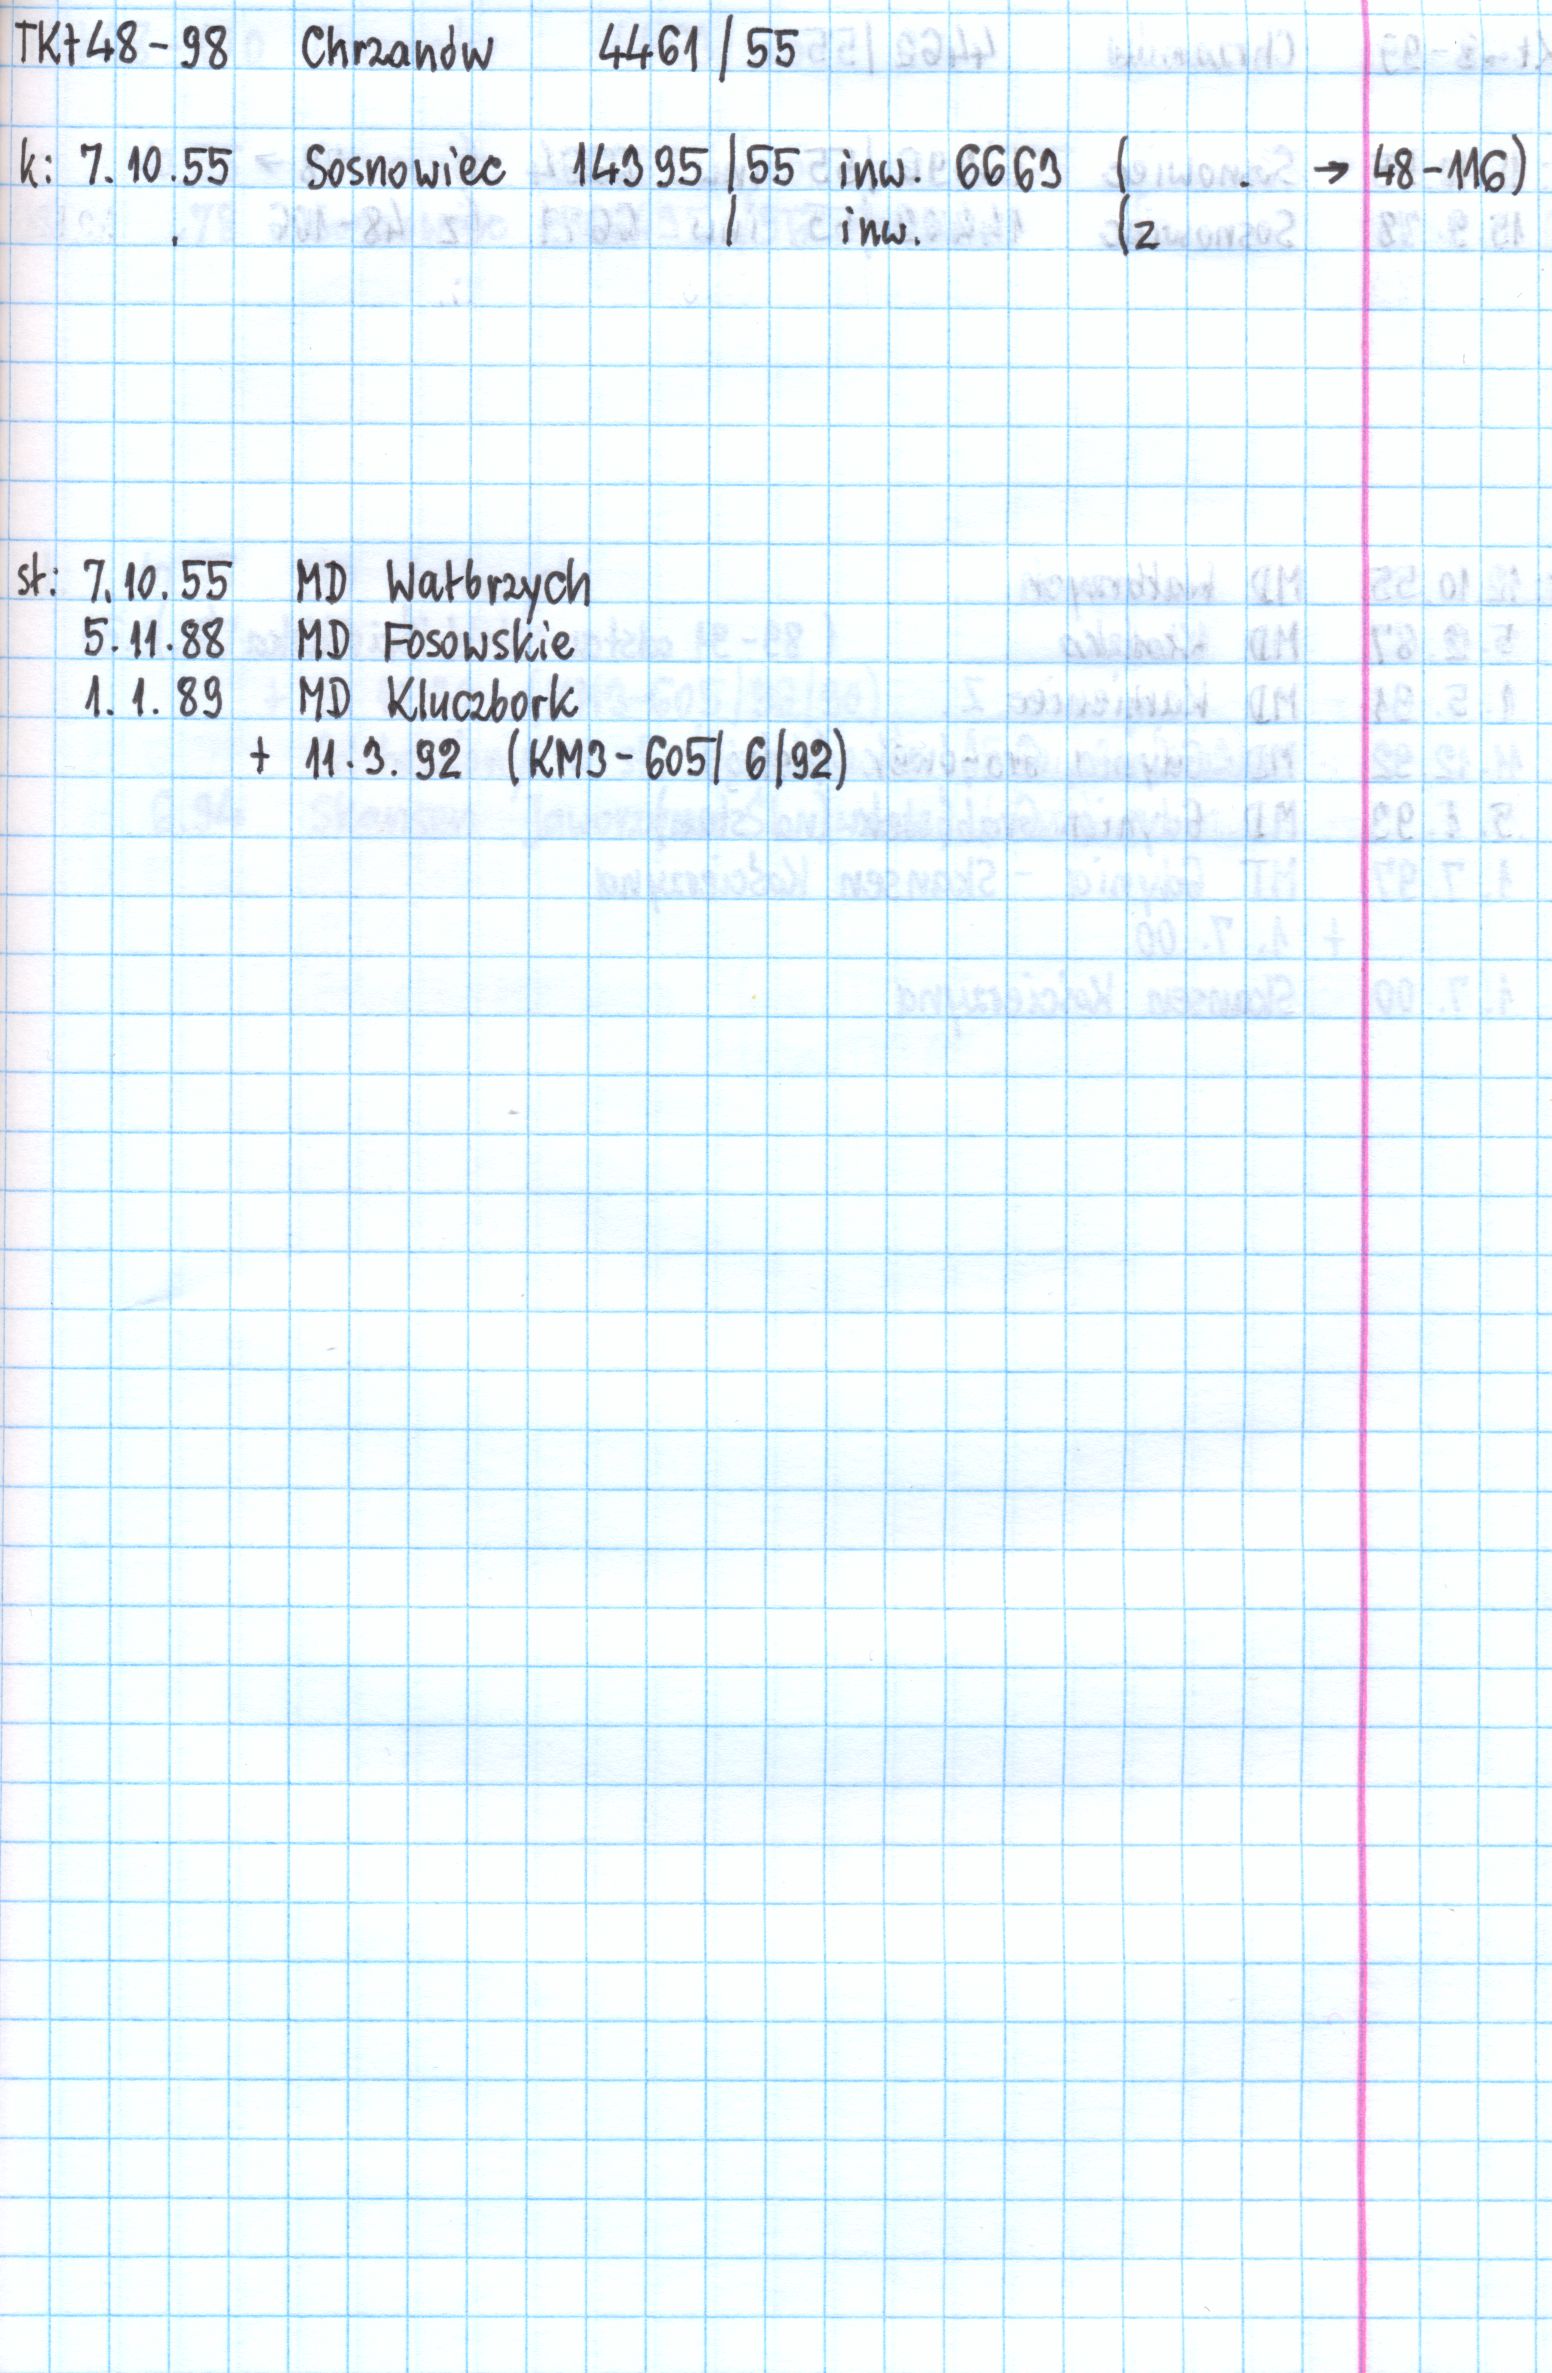 TKt48-98 Chrzanów 4461/55
k: 7.10.55 Sosnowiec 14395/55 inw. 6663 ( . → 48-116)
. / inw. (z
st: 7.10.55 MD Wałbrzych
5.11.88 MD Fosowskie
1.1.89 MD Kluczbork
+ 11.3.92 (KM3-605/6/92)